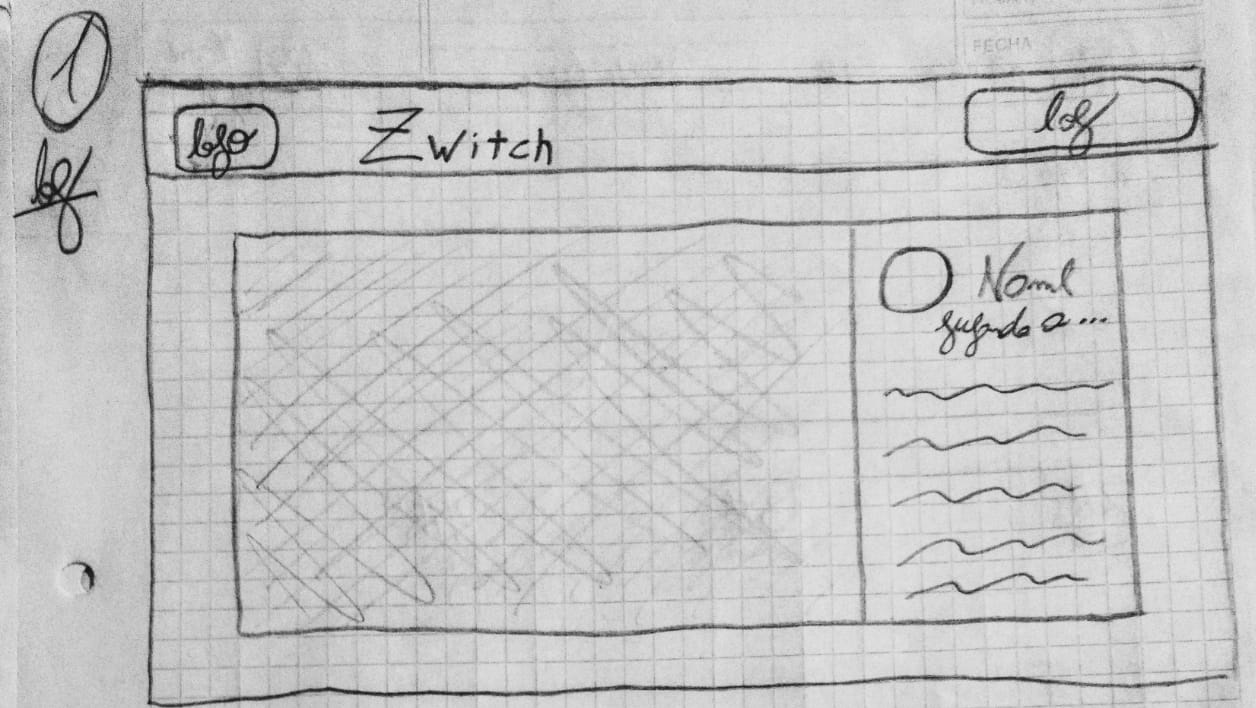 FECHA
1
log
logo
Zwitch
log
Nomb
jugando a...